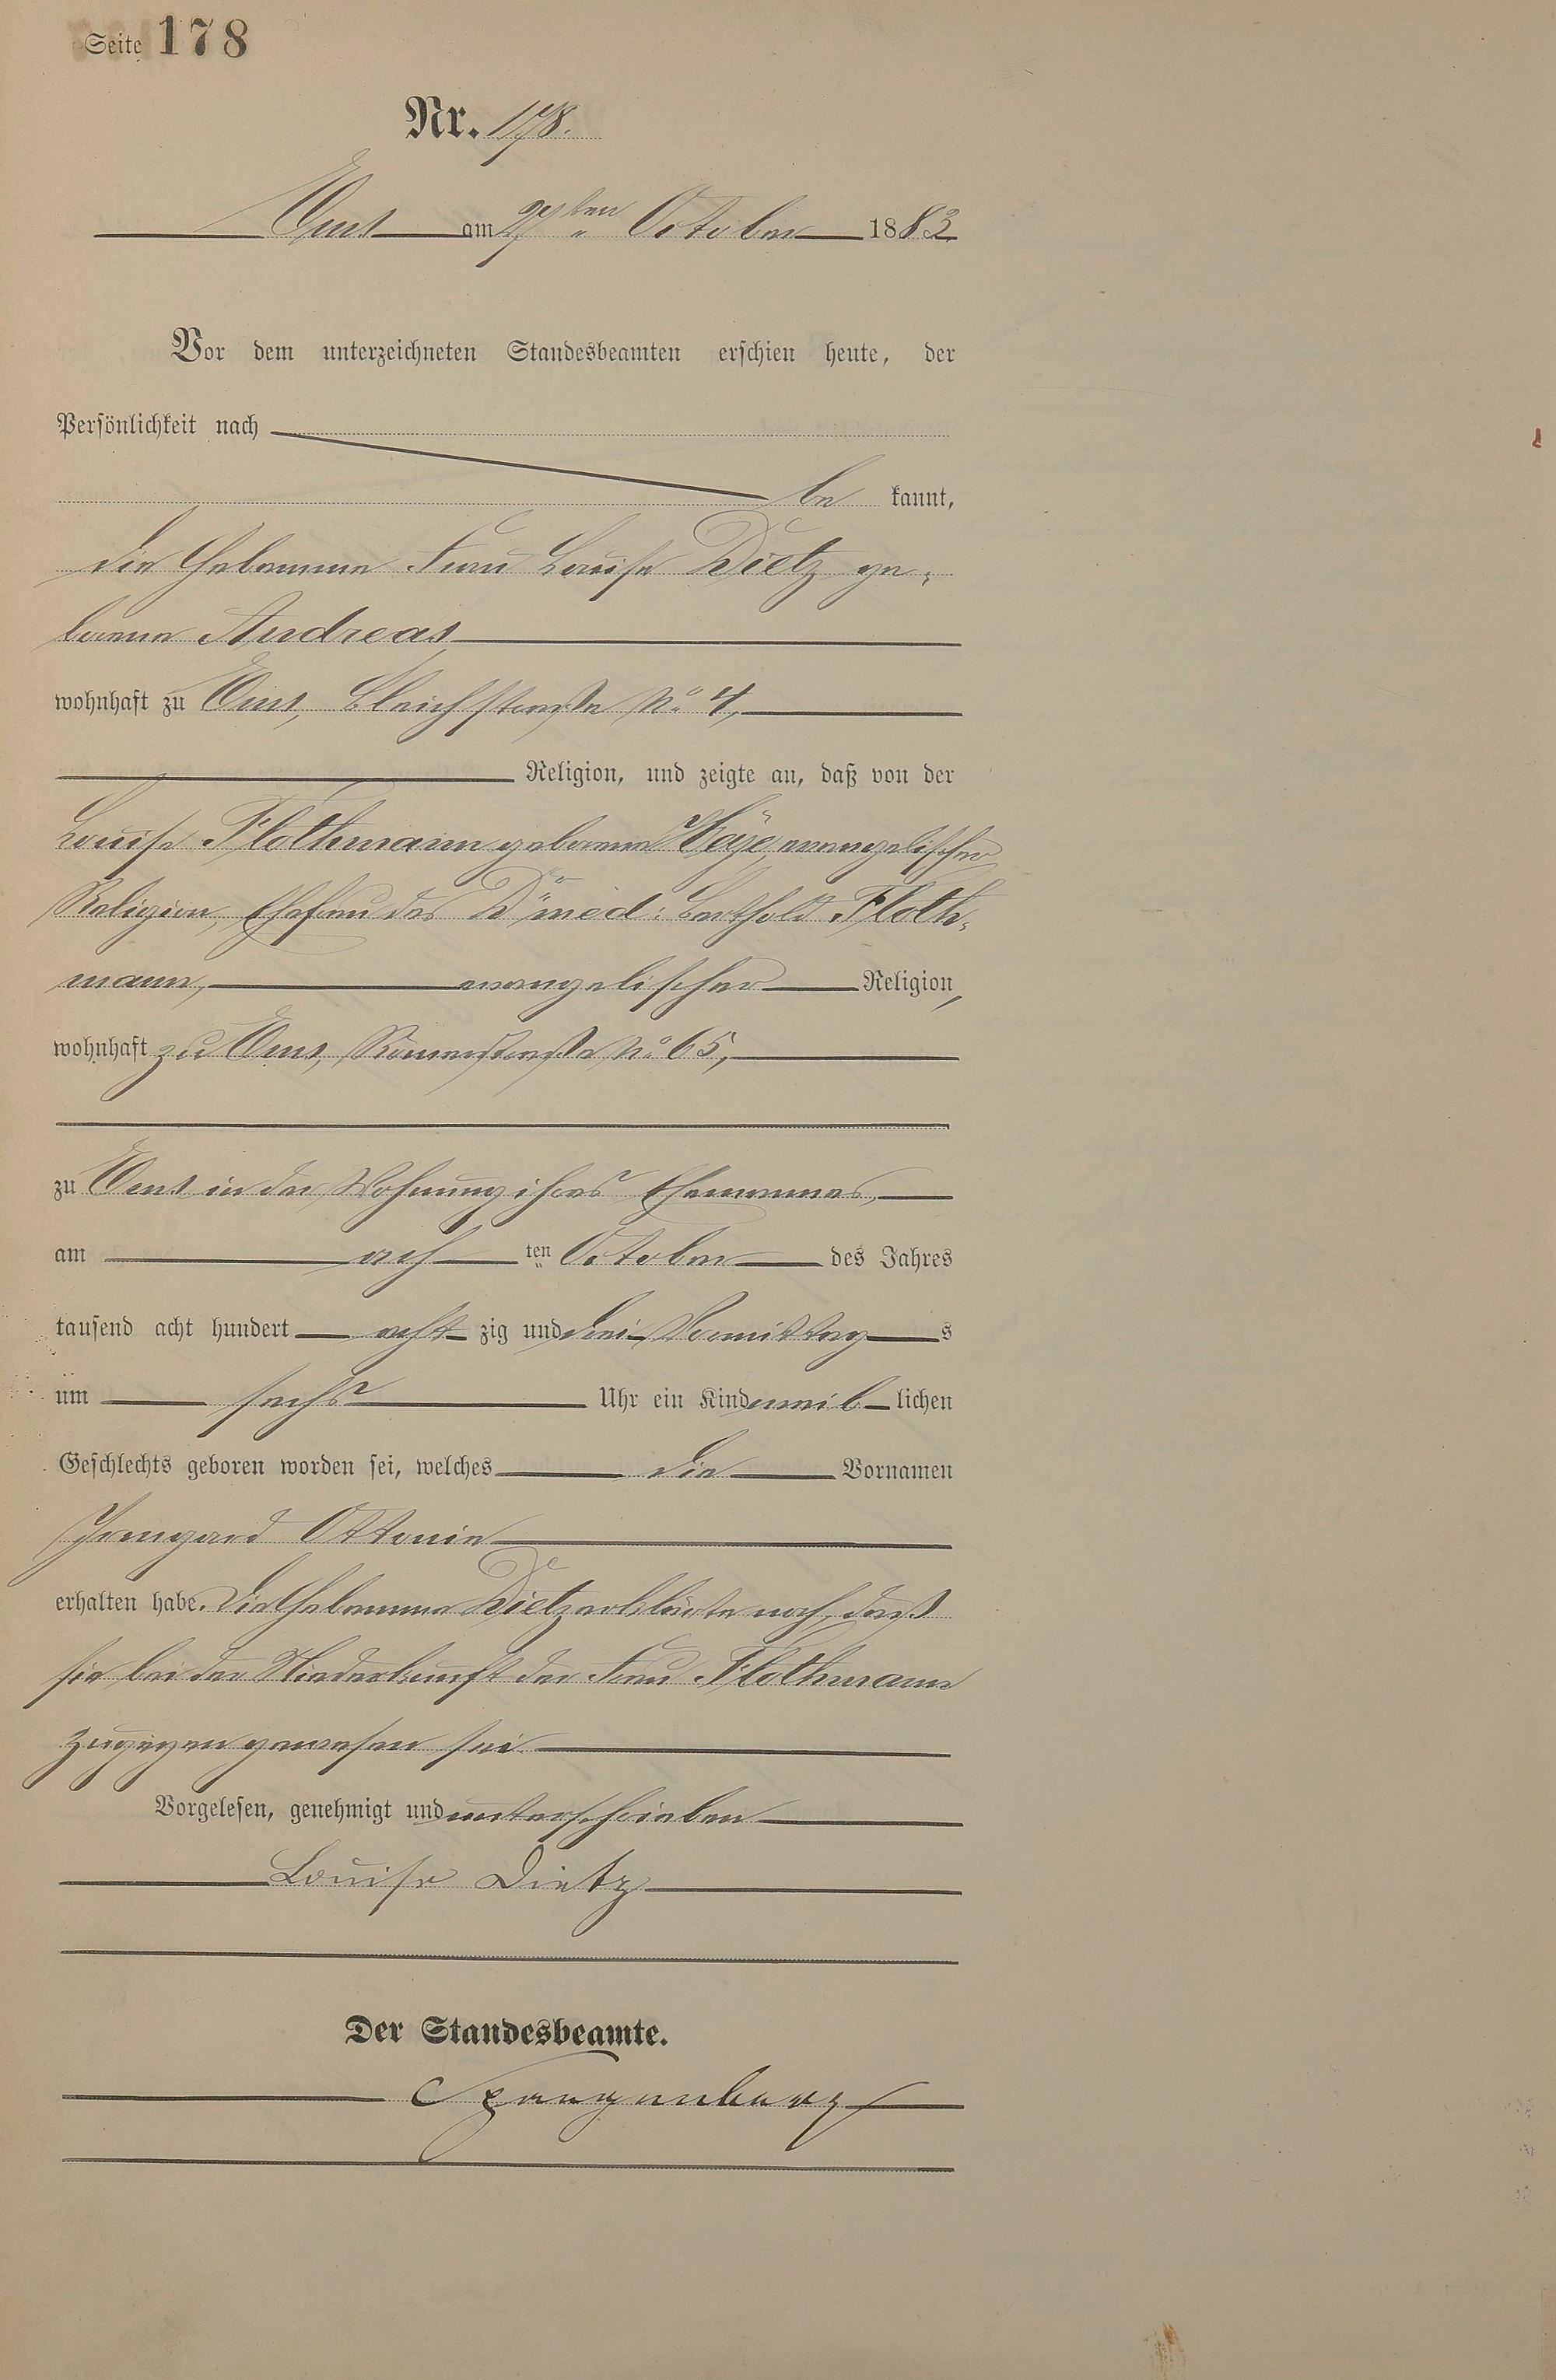 Seite 178
Nr. 178.
Ems am ten October 1883.
Vor dem unterzeichneten Standesbeamten erschien heute, der
Persönlichkeit nach
be kannt,
die Hebamme Frau Louise Dietz ge-
borene Andreas
wohnhaft zu Ems, Bleichstraße No 4,
Religion, und zeigte an, daß von der
Louise Flothmann geborene Heye, evangelischer
Religion, Ehefrau des Dr. med: Berthold Floth-
mann, evangelischer Religion,
wohnhaft zu Ems, Römerstraße No 65,
zu Ems in der Wohnung ihres Ehemannes,
am ach ten October des Jahres
tausend acht hundert acht zig und drei Vormittag s
um sechs Uhr ein Kind weib lichen
Geschlechts geboren worden sei, welches die Vornamen
Irmgard Ottonie
erhalten habe. Die Hebamme Dietz erklärte noch, daß
sie bei der Niederkunft der Frau Flothmann
zugegen gewesen sei.
Vorgelesen, genehmigt und unterschrieben
Louise Dietz
Der Standesbeamte.
Spangenberg